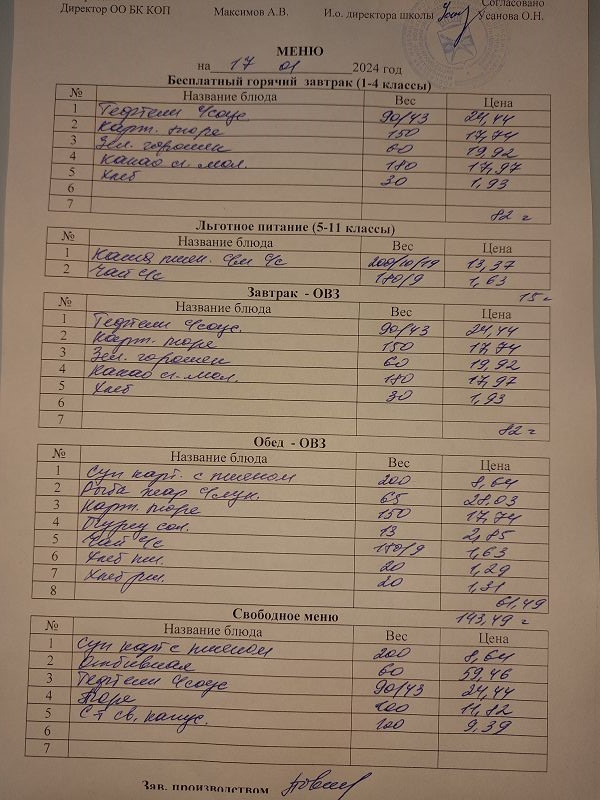 Согласовано
Директор ОО БК КОП Максимов А.В. И.о. директора школы Усанова О.Н.
МЕНЮ
на 17 01 2024 год
Бесплатный горячий завтрак (1-4 классы)
№ Название блюда Вес Цена
1 Тефтели с/соус. 90/43 24,44
2 Карт. пюре 150 17,74
3 Зел. горошек 60 19,92
4 Какао сг. мол. 180 17,97
5 Хлеб 30 1,93
6
7 82 г
Льготное питание (5-11 классы)
№ Название блюда Вес Цена
1 Каша пшен. с/м с/с 13,37
2 Чай с/с 180/9 1,63
15 г
Завтрак - ОВЗ
№ Название блюда Вес Цена
1 Тефтели с/соус. 90/43 24,44
2 Карт. пюре 150 17,74
3 Зел. горошек 60 19,92
4 Какао сг. мол. 180 17,97
5 Хлеб 30 1,93
6
7 82 г
Обед - ОВЗ
№ Название блюда Вес Цена
1 Суп карт. с пшеном 200 8,64
2 Рыба жар с/лук. 65 28,03
3 Карт. пюре 150 17,74
4 Огурец сол. 13 2,85
5 Чай с/с 180/9 1,63
6 Хлеб пш. 20 1,29
7 Хлеб рж. 20 1,31
8 61,49
143,49 г
Свободное меню
№ Название блюда Вес Цена
1 Суп карт с пшеном 200 8,64
2 Отбивная 60 59,46
3 Тефтели с/соус 90/43 24,44
4 Пюре 100 11,82
5 С-т св. капус. 100 9,39
6
7
Зав. производством